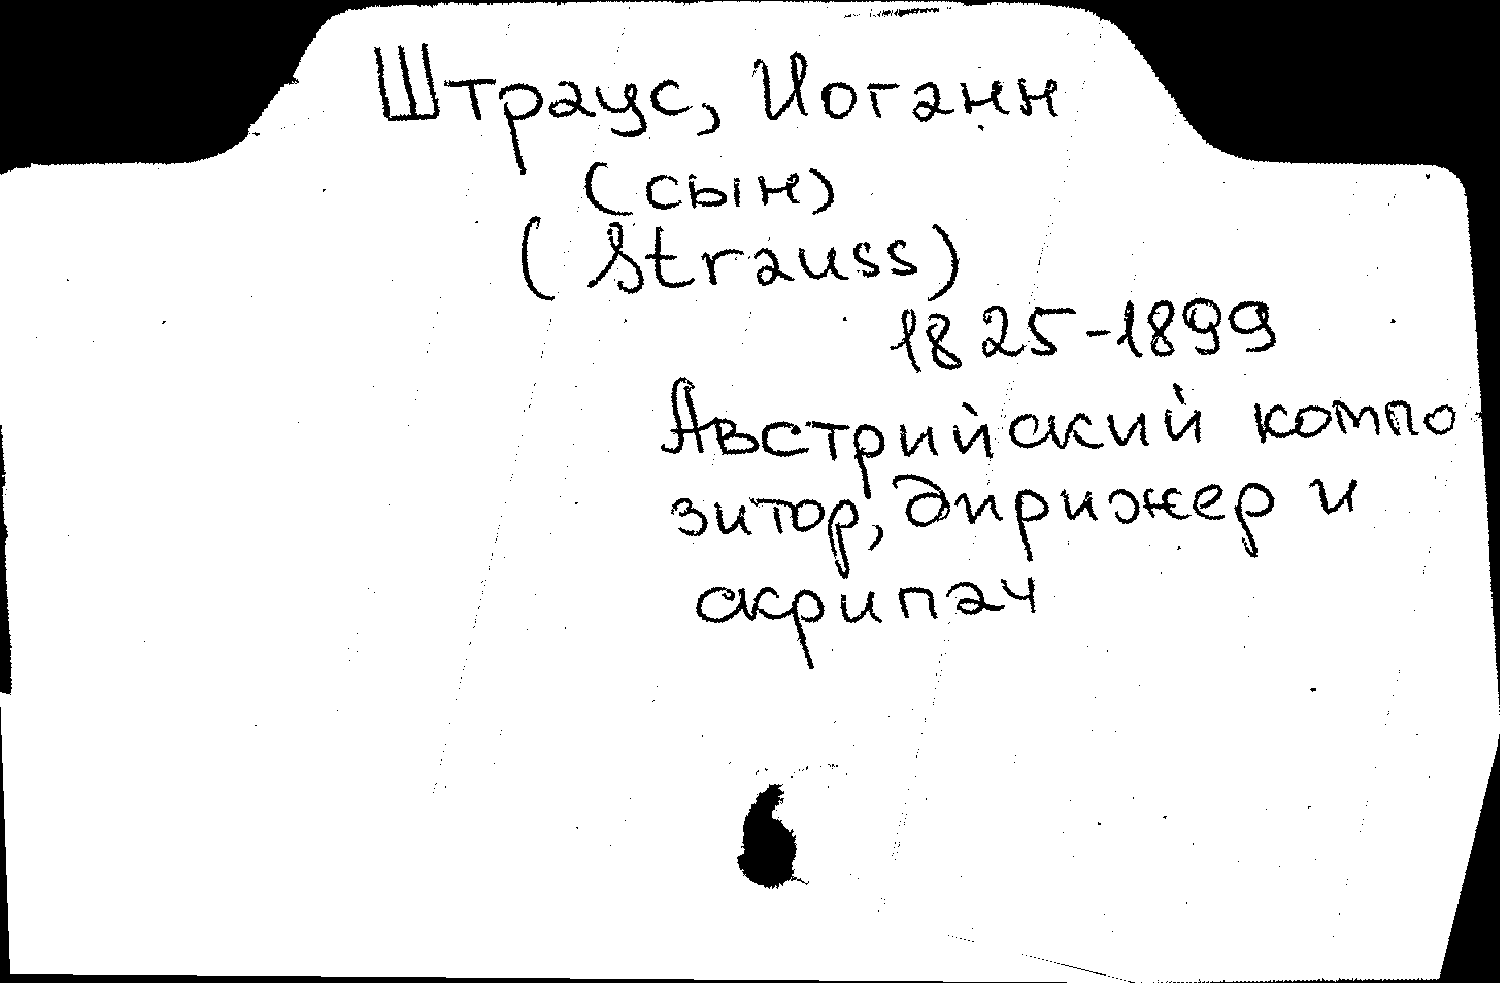 Штраус, Иоганн
(сын)
(Strauss)
1825-1899
Австрийский компо
зитор, дирижер и
скрипач